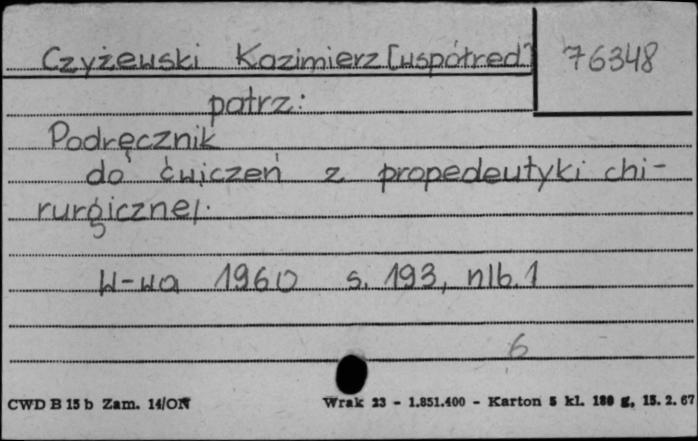 Czyżewski Kazimierz [współred.] 76348
patrz:
Podręcznik
do ćwiczeń z propedeutyki chi-
rurgicznej.
W-wa 1960 s. 193, nlb. 1
6
CWD B 15 b Zam. 14/ON Wrak 23 - 1.851.400 - Karton 5 kl. 180 g, 15. 2. 67